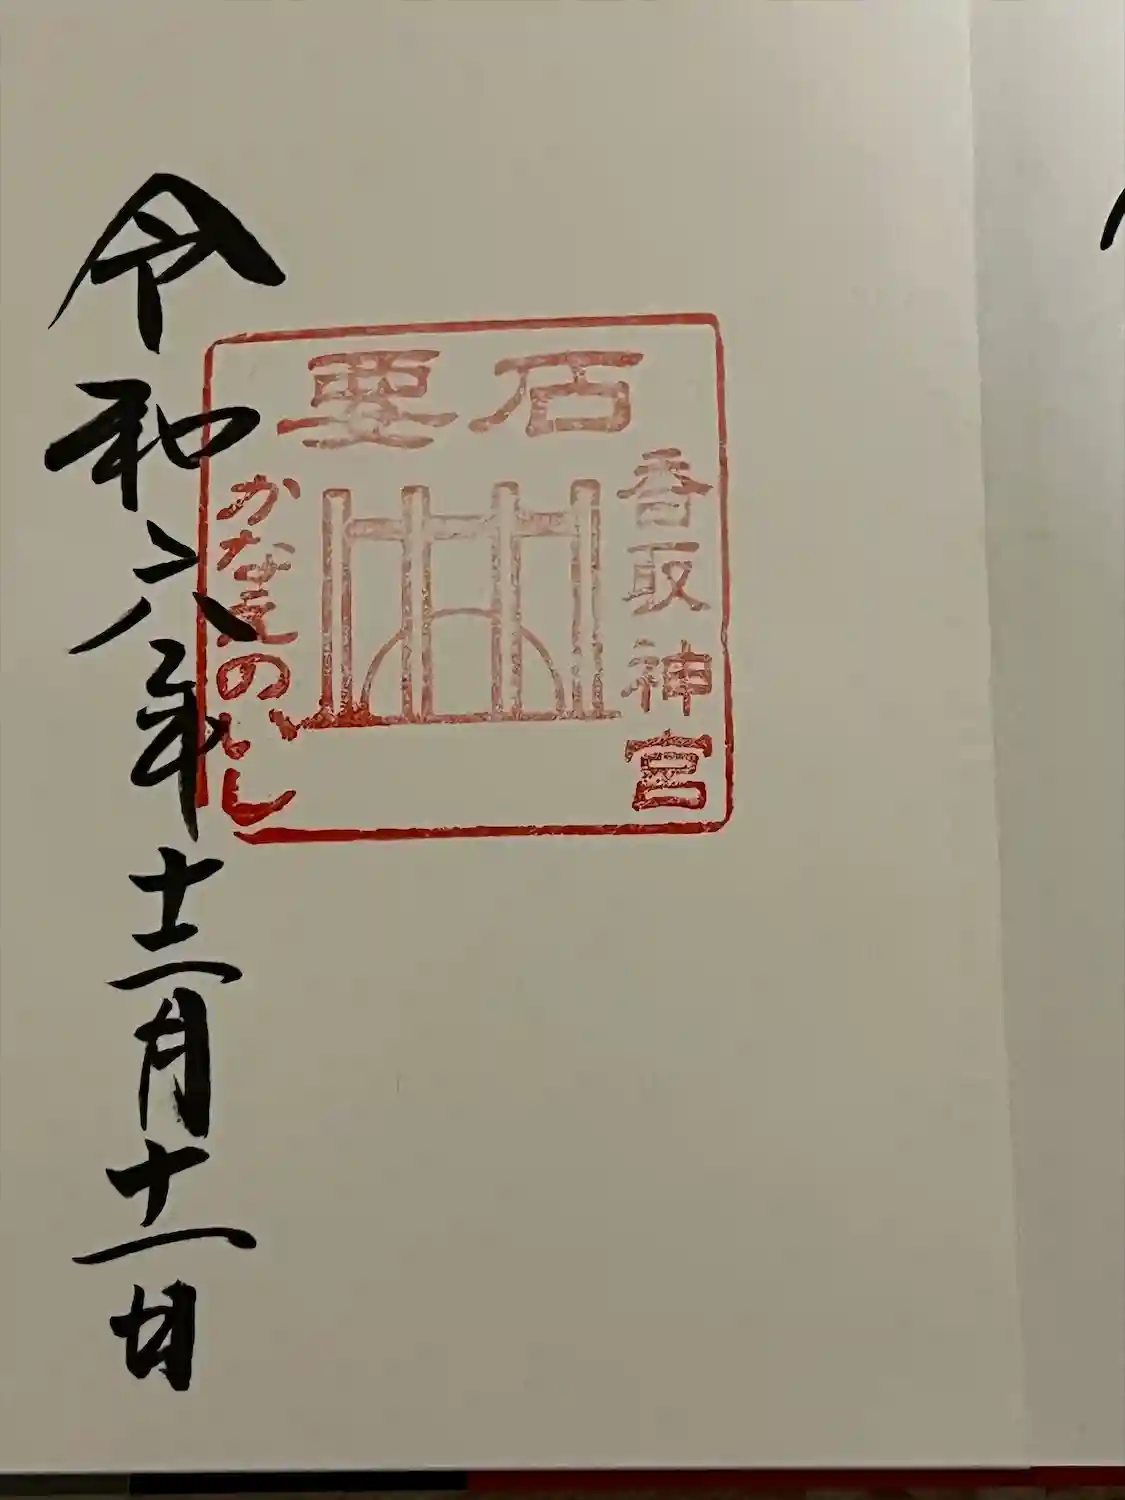 要石
香取神宮
かなめのいし
令和六年十二月十一日